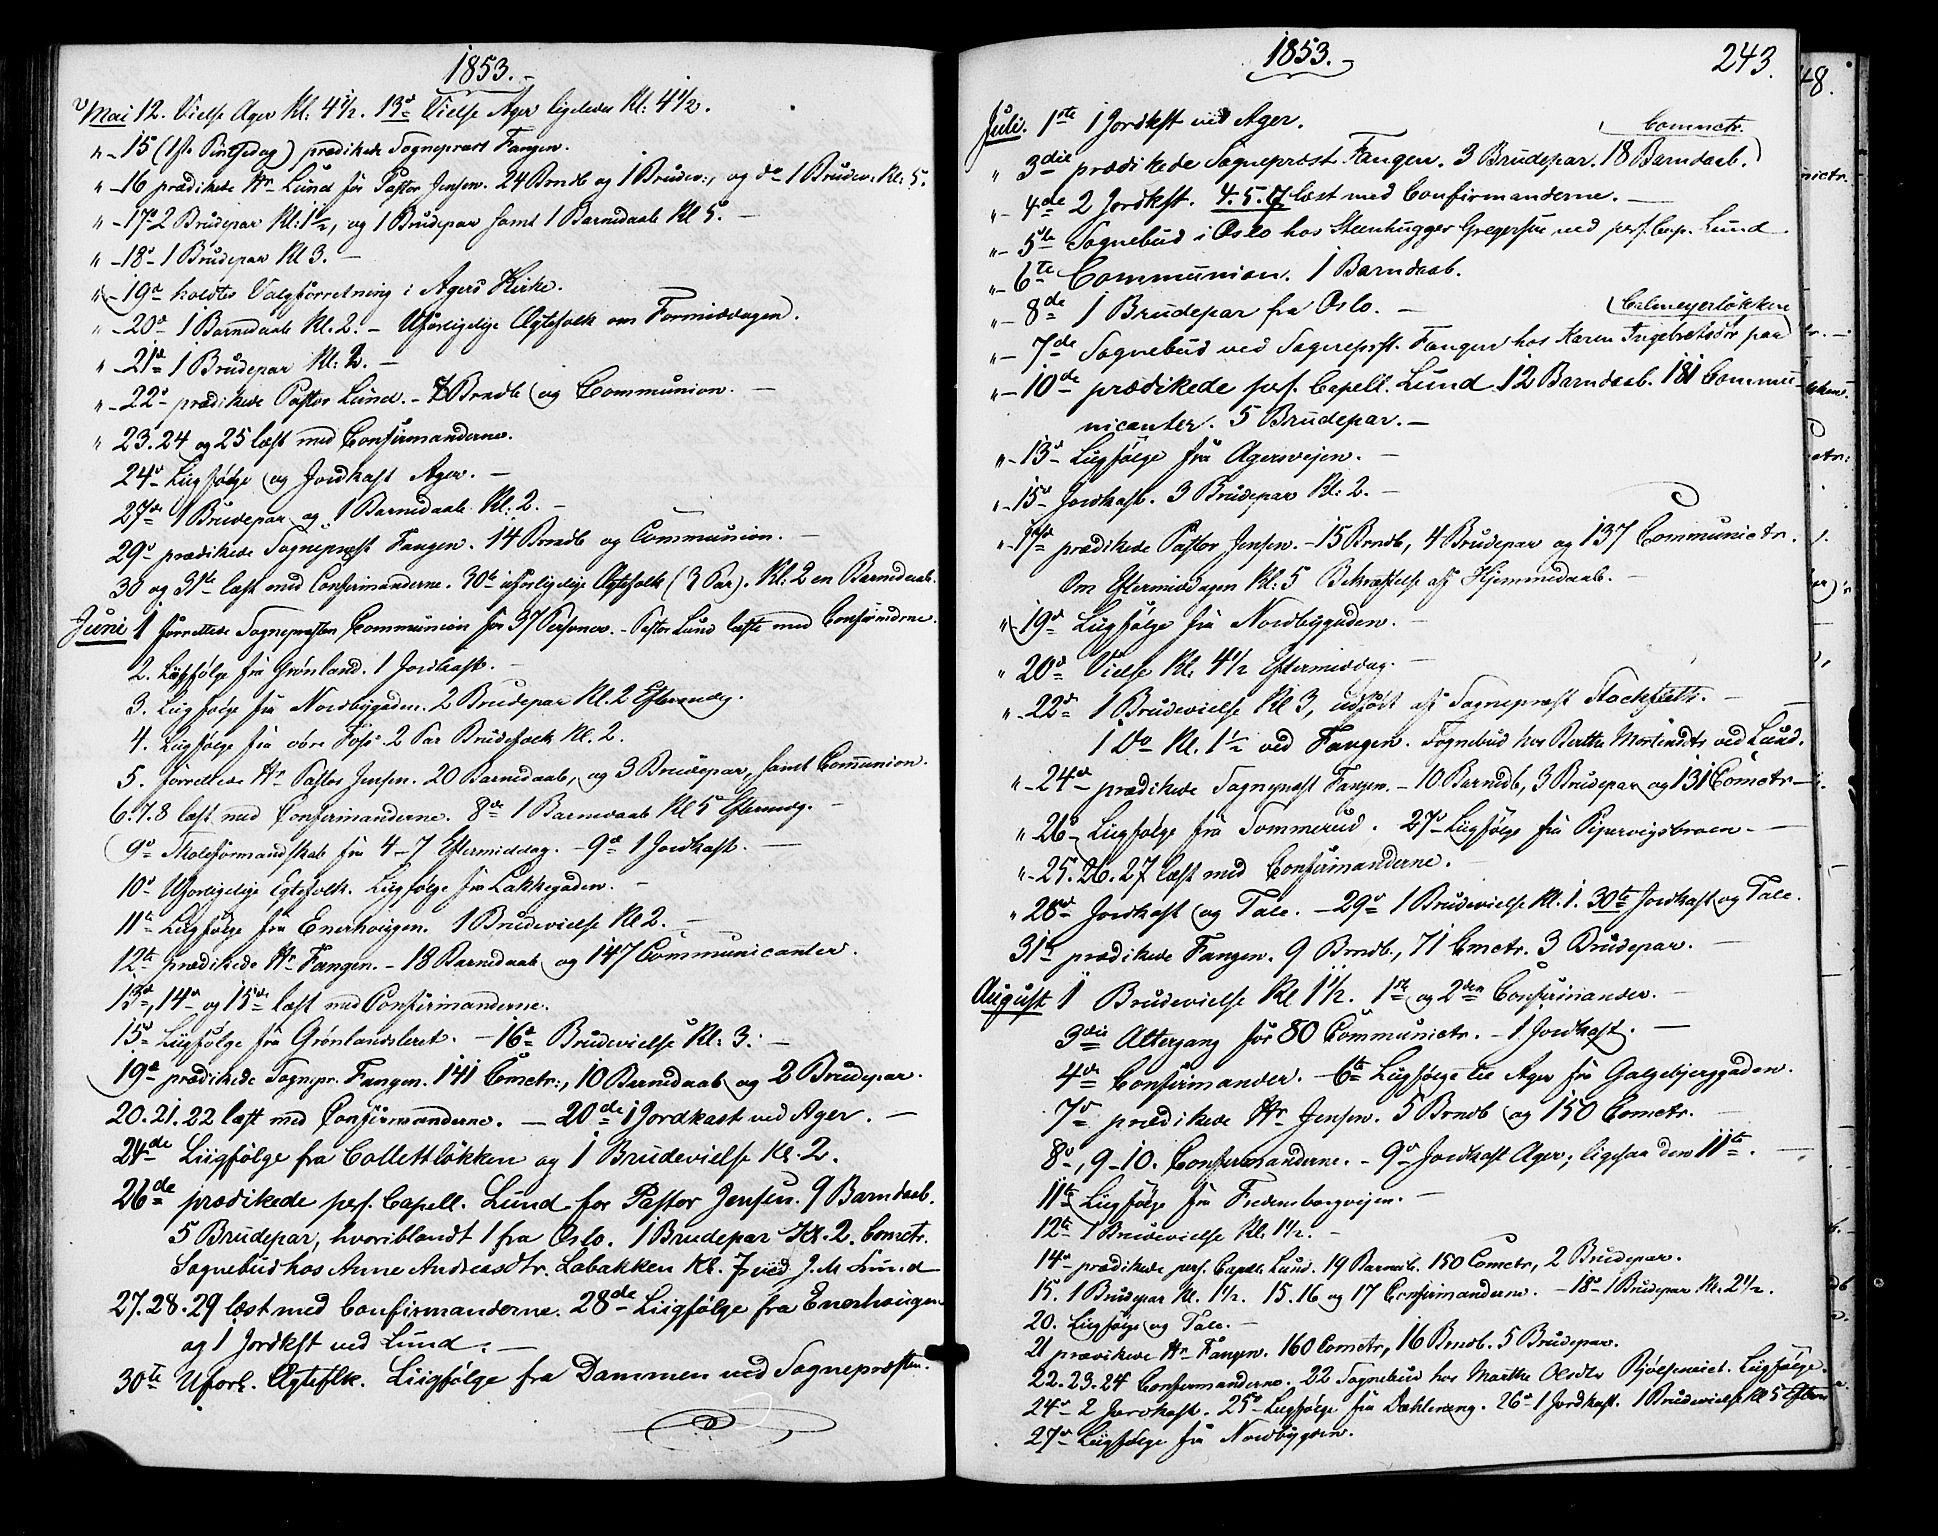 1853.
Mai 12. Vielse Ager Kl: 4 1/2. 13de Vielse Ager ligeledes Kl: 4 1/2.
" - 15 (1ste Pintsedag) prædikede Sognepræst Fangen.
" - 16 prædikede Hr Lund for Pastor Jensen. 24 Brndb og 1 Brudev:, og do 1 Brudev: Kl: 5.
" - 17d 2 Brudepar Kl: 1 1/2, og 1 Brudepar samt 1 Barnedaab Kl 5. -
" - 18d - 1 Brudepar Kl 3. -
" - 19d holdtes Valgforretning i Agers Kirke.
" - 20d 1 Barnedaab Kl. 2. - Uforligelige Ægtefolk om Formiddagen.
" - 21d 1 Brudepar Kl: 2. -
" - 22d prædikede Pastor Lund. - 7 Brndb og Communion. -
" 23. 24 og 25 læst med Confirmanderne.
24d Liigfølge og Jordkast Ager. -
27de 1 Brudepar og 1 Barnedaab Kl: 2. -
29d prædikede Sognepræst Fangen. 14 Brndb og Communion. -
30 og 31te læst med Confirmanderne. 30te uforligelige Ægtefolk (3 Par). Kl: 2 en Barnedaab.
Juni 1 forrettede Sognepræsten Communion for 37 Personer. - Pastor Lund læste med Confirmdrne.
2. Liigfølge fra Grønland. 1 Jordkast. -
3. Liigfølge fra Nordbygaden. 2 Brudepar Kl. 2 Eftermdg.
4. Liigfølge fra øvre Foss. 2 Par Brudefolk Kl. 2.
5. forrettede Hr Pastor Jensen. 20 Barnedaab, og 3 Brudepar, samt Communion.
6. 7. 8 læst med Confirmanderne. 8de 1 Barnedaab Kl 5 Eftermdg. -
9d Skoleformandskab fra 4 - 7 Eftermiddag. - 9d 1 Jordkast. -
10d Uforligelige Egtefolk. Liigfølge fra Lakkegaden. -
11te Liigfølge fra Enerhougen. 1 Brudevielse Kl 2. -
12te prædikede Hr Fangen. - 18 Barnedaab og 147 Communicanter.
13d, 14d og 15de læst med Confirmanderne.
15d Liigfølge fra Grønlandsleret. - 16d Brudevielse Kl: 3. -
19d prædikede Sognepr. Fangen. 141 Cmctr:, 10 Barnedaab og 2 Brudepar.
20. 21. 22 læst med Confirmanderne. - 20de 1 Jordkast ved Ager. -
24de Liigfølge fra Collettløkken og 1 Brudevielse Kl. 2.
26de prædikede pers. Capell. Lund for Pastor Jensen. 9 Barndaab.
5 Brudepar, hvoriblandt 1 fra Oslo. 1 Brudepar Kl. 2. Comctr.
Sognebud hos Anne Andreasdtr. Labakken Kl. 7 ved J. M Lund
27. 28. 29 læst med Confirmanderne. 28de Liigfølge fra Enerhougen
og 1 Jordkst ved Lund. -
30te Uforl. Ægteflk. Liigfølge fra Dammen ved Sognepræsten.
1853.
243.
Juli. 1ste 1 Jordkst ved Ager.
Comnctr.
" 3die prædikede Sognepræst Fangen. 3 Brudepar. 18 Barndaab.
" - 4de 2 Jordkst. 4. 5. 7 læst med Confirmanderne. -
" - 5te Sognebud i Oslo hos Steenhugger Gregersen ved pers. Cap. Lund
" - 6te Communion. 1 Barndaab.
" - 8de 1 Brudepar fra Oslo. -
Calmeyerløkken
" - 7de Sognebud ved Sogneprst. Fangen hos Karen Ingebretsdtr paa
" - 10de prædikede pers. Capell. Lund 12 Barndaab. 181 Commu-
nicanter. 5 Brudepar. -
" - 13d Liigfølge fra Agersvejen. -
" - 15d Jordkast. 3 Brudepar Kl: 2. -
" - 17de prædikede Pastor Jensen. - 15 Brndb, 4 Brudepar og 137 Communictr.
Om Eftermiddagen Kl: 5 Bekræftelse af Hjemmedaab. -
" - 19d Liigfølge fra Nordbygaden. -
" 20d Vielse Kl. 4 1/2 Eftermiddag. -
" - 22de 1 Brudevielse Kl 3, udført af Sognepræst Stockfleth. -
1 Do Kl. 1 1/2 ved Fangen. Sognebud hos Berthe Mortensdtr ved Lund.
" - 24d prædikede Sognepræst Fangen. - 10 Barnedb, 3 Brudepar og 131 Comctr -
" 26d Liigfølge fra Sommerud. 27d Liigfølge fra Pipervigsbroen. -
" - 25. 26. 27 læst med Confirmanderne. -
" 28d Jordkast og Tale. - 29d 1 Brudevielse Kl. 1. 30te Jordkast og Tale.
31te prædikede Fangen. 9 Brndb., 71 Cmctr. 3 Brudepar. -
August 1 Brudevielse Kl 1 1/2. 1ste og 2den Confirmander. -
3die Altergang for 80 Communictr. - 1 Jordkast. -
4de Confirmander. - 6te Liigfølge til Ager fra Galgebjerggaden.
7d prædikede Hr Jensen. 5 Brndb og 150 Comctr. -
8d, 9 - 10. Confirmanderne. - 9d Jordkast Ager; ligesaa den 11te. -
11te Liigfølge fra Fredensborgveien. -
12te 1 Brudevielse Kl. 1 1/2. -
14d prædikede pers. Capell. Lund. 19 Barnedb. 150 Comctr, 2 Brudepar.
15. 1 Brudepar Kl. 1 1/2. 15. 16 og 17 Confirmanderne. - 18d - 1 Brudepar Kl. 2 1/2.
20. Liigfølge og Tale. -
21 prædikede Hr Fangen. 160 Comctr, 16 Brndb. 5 Brudepar.
22. 23. 24 Confirmanderne. 22 Sognebud hos Marthe Olsdtr Liigfølge.
24d - 2 Jordkast. 25d Liigfølge fra Dæhleneng. 26d 1 Jordkast. 1 Brudevielse Kl 5
27d Liigfølge fra Nordbygden.